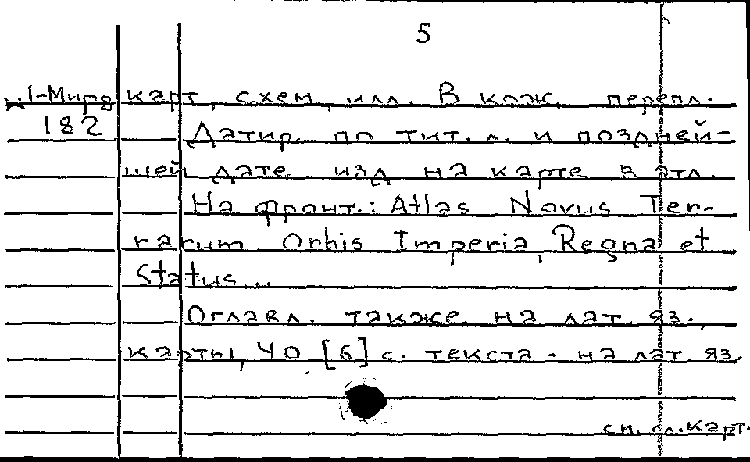 5
I-Мирв карт, схем, илл. В кож. перепл.
182 Датир. по тит. л. и поздней-
шей дате изд. на карте в атл.
На фронт.: Atlas Novus Ter-
rarum Orbis Imperia, Regna et
Status...
Оглавл. также на лат. яз.,
карты, 40 [6] с. текста - на лат. яз.
см. сл. карт.